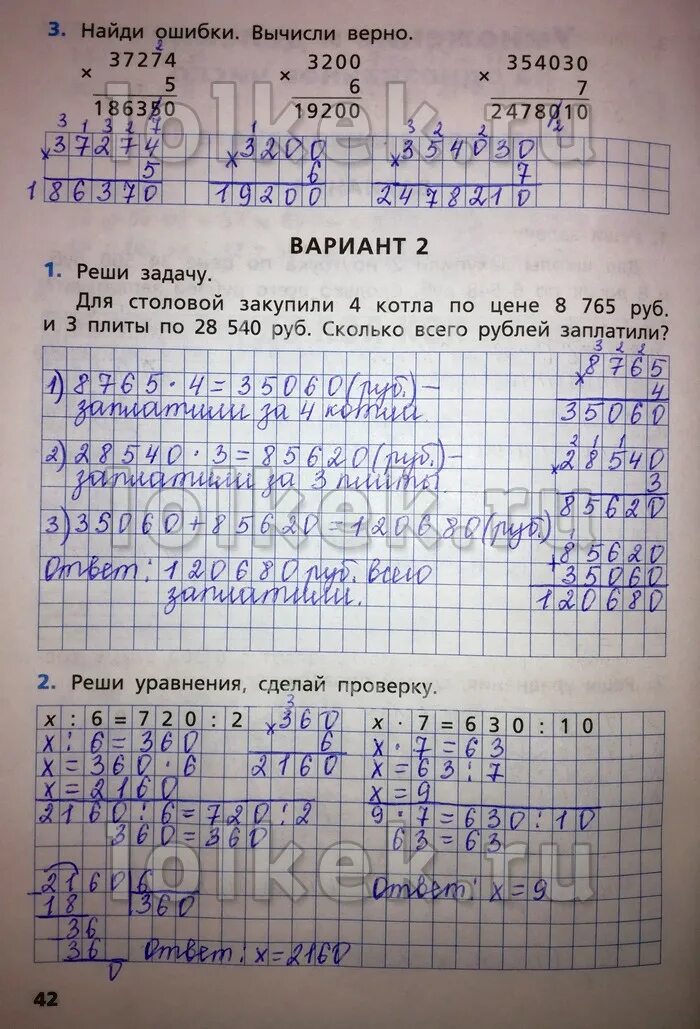 3. Найди ошибки. Вычисли верно.
2
× 37274
5
186350
7
× 3200
6
19200
× 354030
7
2478010
2
3 1 3 2
× 37274
5
186370
1
× 3200
6
19200
3 2 2
× 354030
7
2478210
ВАРИАНТ 2
1. Реши задачу.
Для столовой закупили 4 котла по цене 8 765 руб.
и 3 плиты по 28 540 руб. Сколько всего рублей заплатили?
1) 8765 · 4 = 35060 (руб.) –
заплатили за 4 котла.
2) 28540 · 3 = 85620 (руб.) –
заплатили за 3 плиты.
3) 35060 + 85620 = 120680 (руб.)
Ответ: 120680 руб. всего
заплатили.
3 2 2
× 8765
4
35060
2 1 1
× 28540
3
85620
1
+ 85620
35060
120680
2. Реши уравнения, сделай проверку.
х : 6 = 720 : 2
х : 6 = 360
х = 360 · 6
х = 2160
2160 : 6 = 720 : 2
360 = 360
3
× 360
6
2160
х · 7 = 630 : 10
х · 7 = 63
х = 63 : 7
х = 9
9 · 7 = 630 : 10
63 = 63
Ответ: х = 9
– 2160 6
18 360
– 36
36
0
Ответ: х = 2160
42
lolkek.ru
lolkek.ru
lolkek.ru